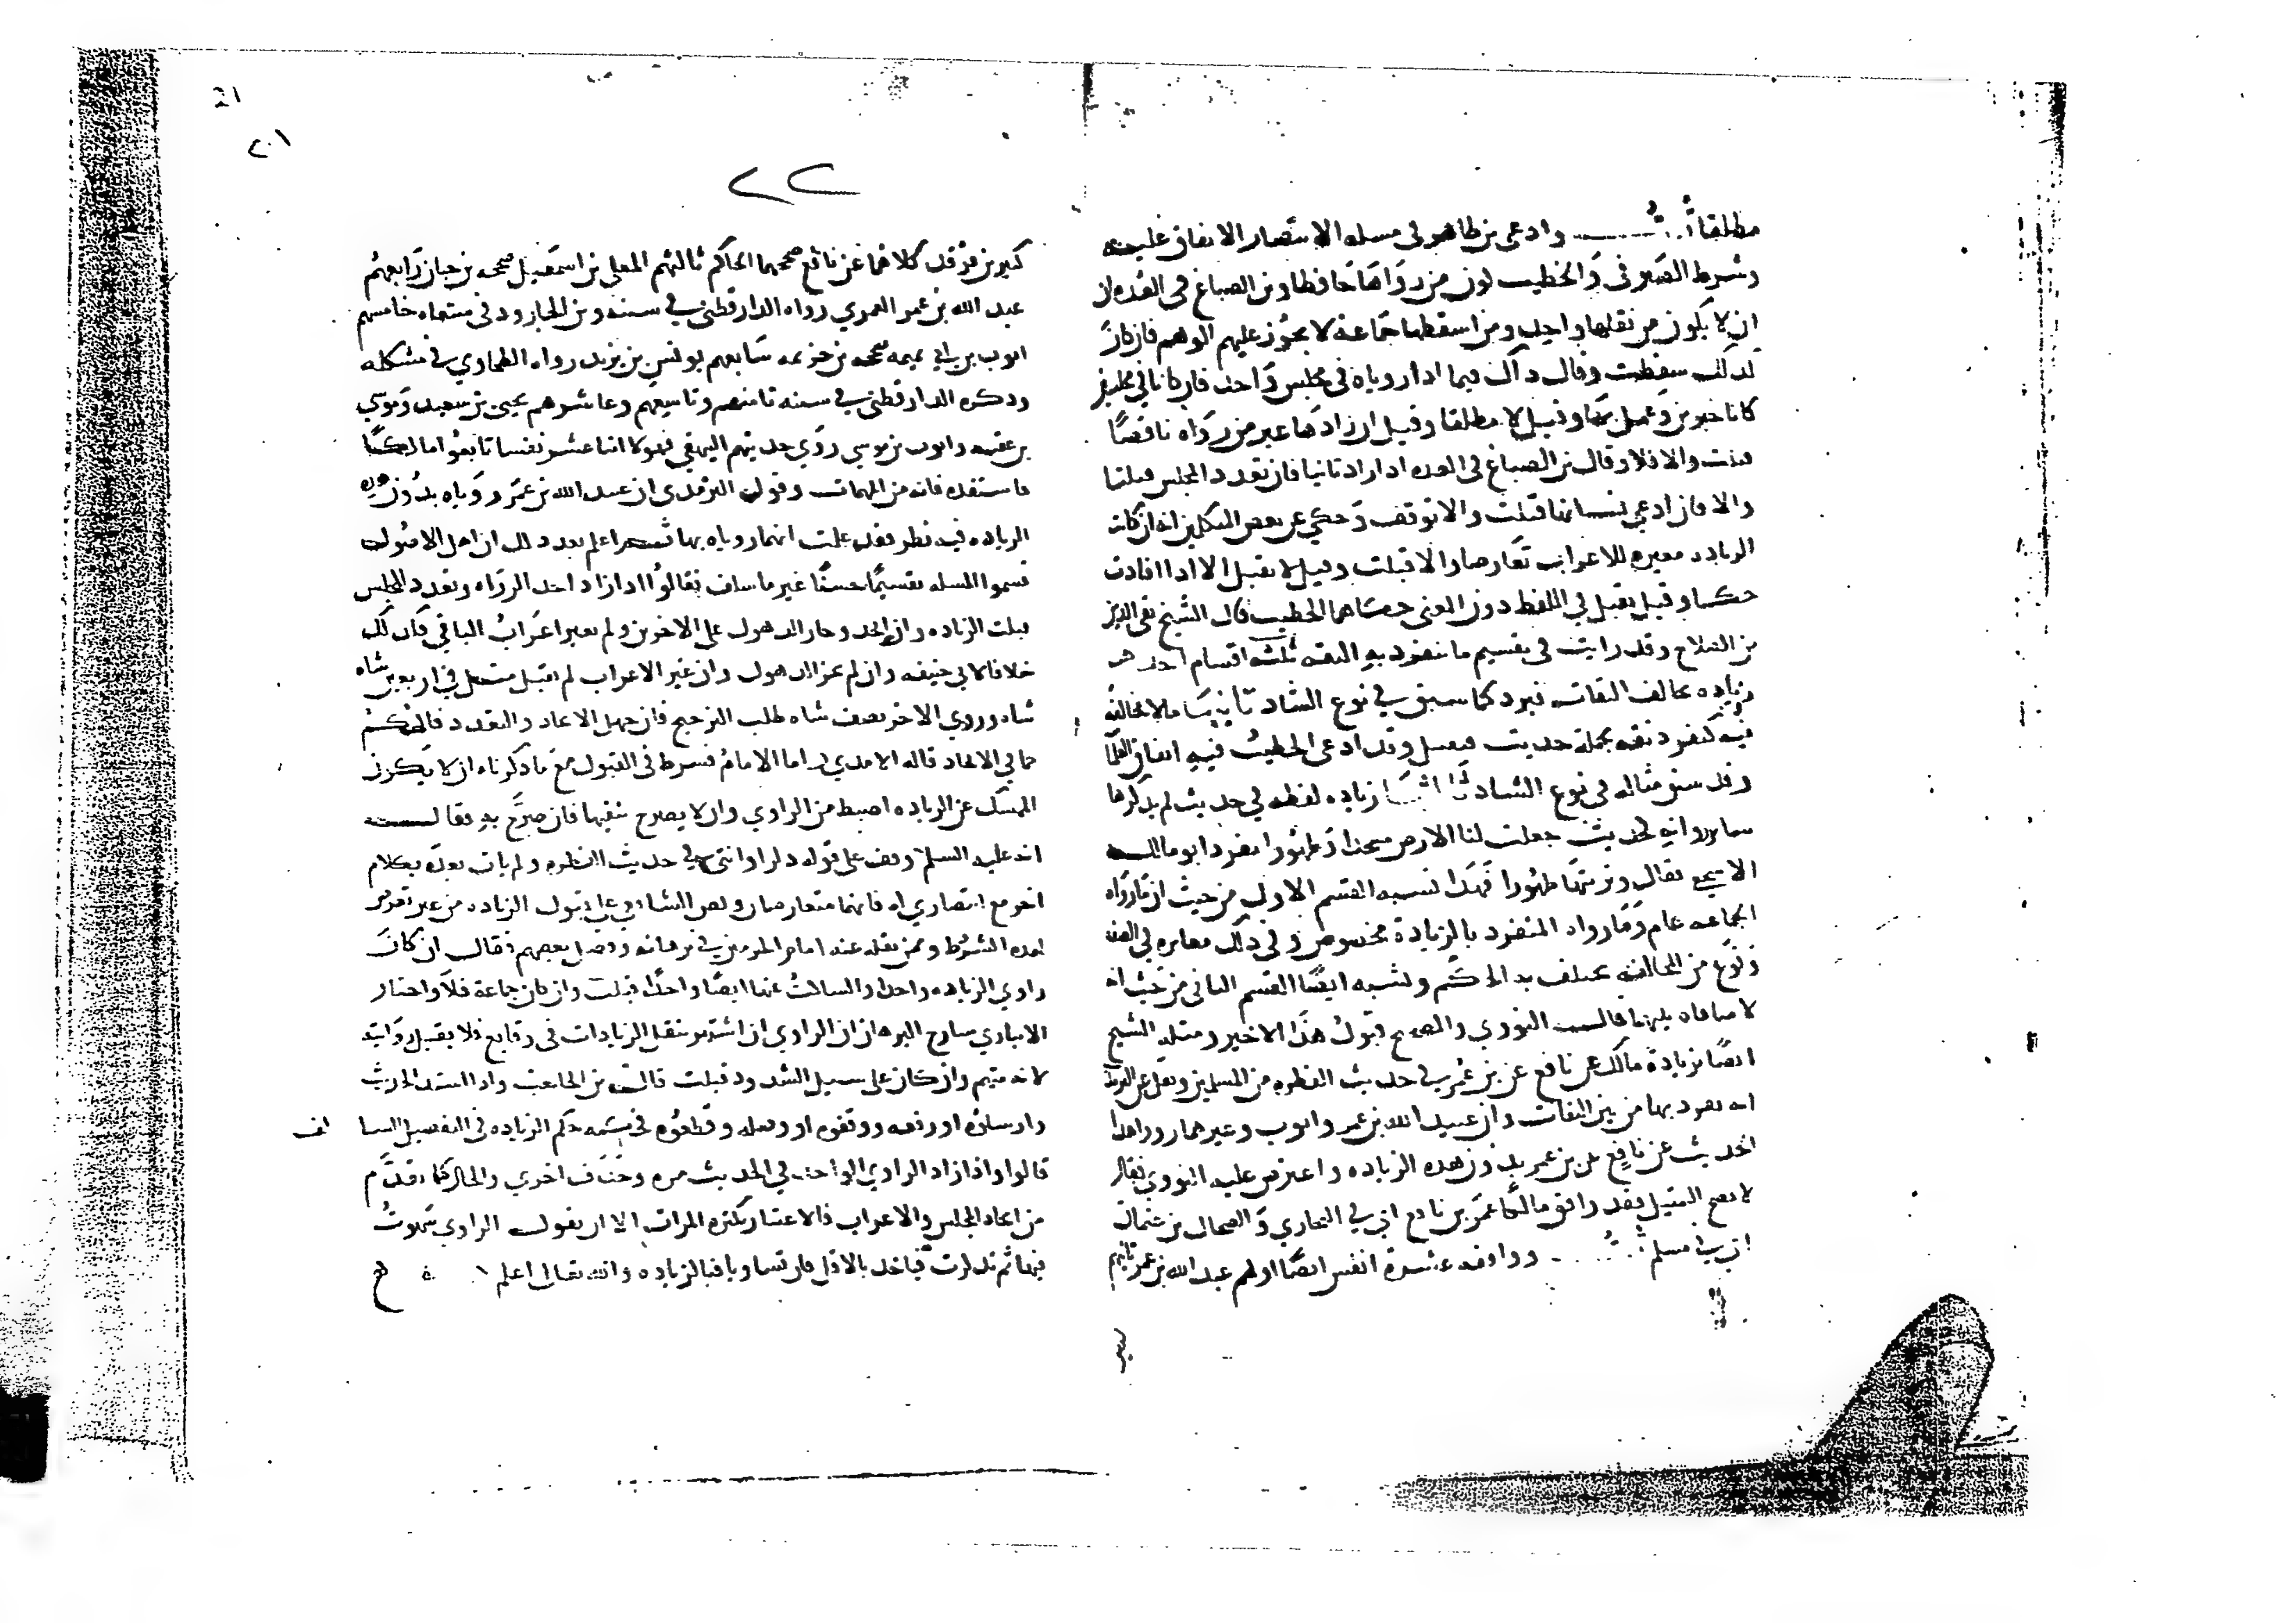 مطلقا قلت وادعى بن طاهر في مسله الانتصار الاتفاق عليه
وشرط الصيرفي والخطيب لون من رواها حافظا وبن الصباغ في العده ان
ان لا يكون من نقلها واحد ومن اسقطها جماعة لا يجوز عليهم الوهم فان كان
لذلك سقطت وقال ذلك فيما اذا روياه في مجلس واحد فان كانا في مجلسين
كانا خبرين وعمل بهما وقيل لا مطلقا وقيل ان زادها غير من رواه ناقصا
قبلت والا فلا وقال بن الصباغ في العده اذا زاد ثانيا فان تعدد المجلس قبلتا
والا فان ادعى نسيانها قبلت والا توقف وحكي عن بعض المتكلمين انه ان كانت
الزياده مغيره للاعراب تعارضا والا قبلت وقيل لا تقبل الا اذا افادت
حكما وقيل يقبل في اللفظ دون المعنى حكاهما الخطيب قال الشيخ تقي الدين
بن الصلاح وقد رايت في تقسيم ما ينفرد به الثقه ثلثه اقسام احدها
زياده يخالف الثقات فيرد كما سبق في نوع الشاد ثانيها ما لا يخالفه
فيه كتفرد ثقه بجملة حديث فيقبل وقد ادعى الخطيب فيه اتفاق العلما
وقد سبق مثاله في نوع الشاد ثالثها زياده لفظه في حديث لم يذكرها
ساير رواته لحديث جعلت لنا الارض مسجدا وطهورا تفرد ابو مالك
الاشجعي فقال وتربتها طهورا فهذا لشبه القسم الاول من حيث ان ما رواه
الجماعه عام وما رواه المنفرد بالزيادة مخصوص وفي ذلك مغايره في الصفه
ونوع من المخالفه يختلف بها الحكم ولشبه ايضا القسم الثاني من حيث انه
لا منافاه بينهما قالت النووي والصحيح قبول هذا الاخير ومثله الشيخ
ايضا بزيادة مالك عن نافع عن بن عمر في حديث الفطره من المسلمين ونقل عن الترمذي
انه تفرد بها من بين الثقات وان عبيد الله بن عمر وايوب وغيرهما رووا هذا
الحديث عن نافع عن بن عمر بدون هذه الزياده واعترض عليه النووي فقال
لا يصح التمثيل فقد وافق مالكا عمر بن نافع اي في البخاري والضحاك بن عثمان
اي في مسلم قلت ووافقه عشرة انفس ايضا اولهم عبد الله بن عمر ثانيهم
21
٢٠١
٢٢
كثير بن فرقد كلاهما عن نافع صححهما الحاكم ثالثهم المعلى بن اسمعيل صححه بن حبان رابعهم
عبد الله بن عمر العمري رواه الدارقطني في سننه وبن الجارود في منتقاه خامسهم
ايوب بن ابي تميمه صححه بن خزيمه سابعهم يونس بن يزيد رواه الطحاوي في مشكله
وذكره الدارقطني في سننه ثامنهم وتاسعهم وعاشرهم يحيى بن سعيد وموسى
بن عقبه وايوب بن موسى روي حديثهم البيهقي فهولا اثنا عشر نفسا تابعوا مالكا
فاستفده فانه من المهمات وقول الترمذي ان عبيد الله بن عمر روياه بدون هذه
الزياده فيه نظر فقد علمت انهما روياه بها ثم اعلم بعد ذلك ان اهل الاصول
قسموا المسله تقسيما حسنا غير ما سلف فقالوا اذا زاد احد الرواه وتعدد المجلس
قبلت الزياده وان اتحد وجاز الذهول على الاخرين ولم تغير اعراب الباقي فكذلك
خلافا لابي حنيفه وان لم يجز الذهول وان غير الاعراب لم تقبل مثل في اربعين شاه
شاه وروي الاخر نصف شاه طلب الترجيح فان جهل الاتحاد والتعدد فالحكم
كما في الاتحاد قاله الامدي واما الامام فشرط في القبول مع ما ذكرناه ان لا يكون
الممسك عن الزياده اضبط من الراوي وان لا يصرح بنفيها فان صرح به فقال
انه عليه السلم وقف على قوله ذكر او انثى في حديث الفطره ولم يات بعده بكلام
اخر مع انتصاري له فانهما متعارضان ونص الشافعي على قبول الزياده من غير تعرض
لهذه الشروط وممن نقله عنه امام الحرمين في برهانه وفصل بعضهم فقال ان كان
راوي الزياده واحدا والساكت عنها ايضا واحدا قبلت وان كان جماعة فلا واختار
الابياري شارح البرهان ان الراوي ان اشتهر بنقل الزيادات في وقايع فلا يقبل روايته
لانه متهم وان كان على سبيل الشذوذ قبلت قالت بن الحاجب واذا اسند الحديث
وارسلوه او رفعه ووقفوه او وصله وقطعوه فحكمه حكم الزياده في التفصيل السا لف
قالوا واذا زاد الراوي الواحد في الحديث مره وحذف اخرى والحال كما تقدم
من اتحاد المجلس والاعراب فالاعتبار بكثره المرات الا ان يقول الراوي سهوت
فيها ثم تذكرت فياخذ بالاقل فان تساويا فبالزياده والله تعالى اعلم